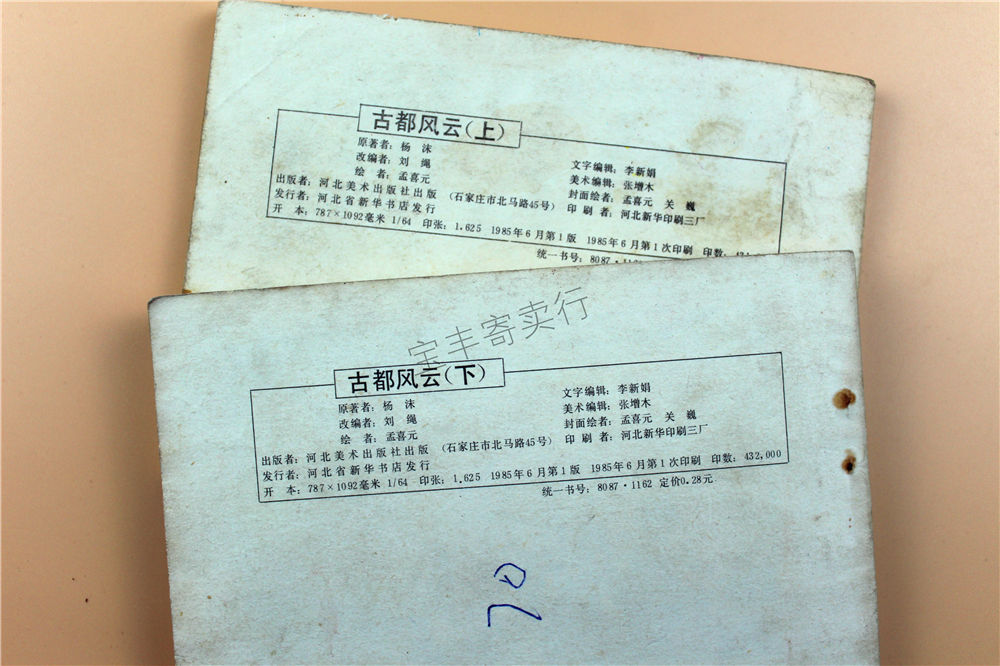 古都风云（上）
原著者：杨 沫
改编者：刘 绳
绘 者：孟喜元
文字编辑：李新娟
美术编辑：张增木
封面绘者：孟喜元 关 巍
出版者：河北美术出版社出版 （石家庄市北马路45号） 印 刷 者：河北新华印刷三厂
发行者：河北省新华书店发行
开 本：787×1092毫米 1/64 印张：1.625 1985年6月第1版 1985年6月第1次印刷 印数：
统一书号：8087·
宝丰寄卖行
古都风云（下）
原著者：杨 沫
改编者：刘 绳
绘 者：孟喜元
文字编辑：李新娟
美术编辑：张增木
封面绘者：孟喜元 关 巍
出版者：河北美术出版社出版 （石家庄市北马路45号） 印 刷 者：河北新华印刷三厂
发行者：河北省新华书店发行
开 本：787×1092毫米 1/64 印张：1.625 1985年6月第1版 1985年6月第1次印刷 印数：432,000
统一书号：8087·1162 定价0.28元
70